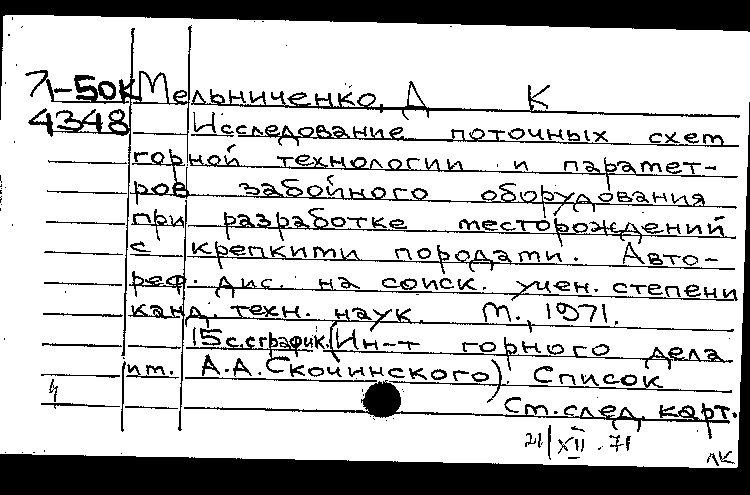 Л-50к Мельниченко, Д К
4348 Исследование поточных схем
горной технологии и парамет-
ров забойного оборудования
при разработке месторождений
с крепкими породами. Авто-
реф. дис. на соиск. учен. степени
канд. техн. наук. М., 1971.
15 с. с график. (Ин-т горного дела
им. А.А.Скочинского). Список
См. след. карт.
21/XII.71
ЛК